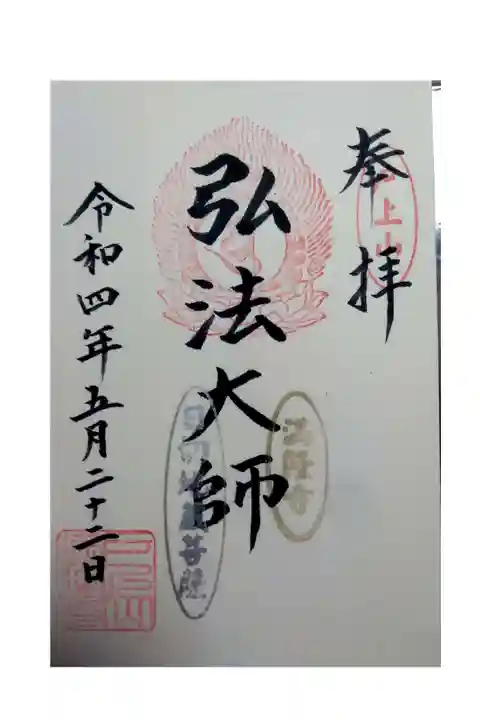 奉拝
上山
弘法大師
日切地蔵菩薩
令和四年五月二十二日